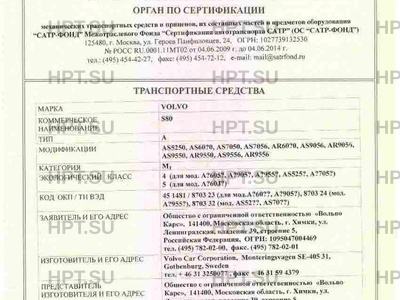 ОРГАН ПО СЕРТИФИКАЦИИ
механических транспортных средств и прицепов, их составных частей и предметов оборудования
"САТР-ФОНД" Межотраслевого Фонда "Сертификация автотранспорта САТР" (ОС "САТР-ФОНД")
125480, г. Москва, ул. Героев Панфиловцев, 24, ОГРН: 1027739132530
№ РОСС RU.0001.11МТ02 от 04.06.2009 г. до 04.06.2014 г.
тел.: (495) 454-42-27, факс: (495) 454-72-12, e-mail: mail@satrfond.ru
HPT.SU HPT.SU HPT.SU
ТРАНСПОРТНЫЕ СРЕДСТВА
МАРКА VOLVO
КОММЕРЧЕСКОЕ НАИМЕНОВАНИЕ S80
ТИП A
МОДИФИКАЦИИ AS5250, AS6070, AS7050, AS7056, AR6070, AS9050, AS9056, AR9050, AS9550, AR9550, AS9556, AR9556
КАТЕГОРИЯ M1
ЭКОЛОГИЧЕСКИЙ КЛАСС 4 (для мод. A?605?, A?905?, A?955?, AS525?, A?705?)
5 (для мод. A?603?)
КОД ОКП / ТН ВЭД 45 1481 / 8703 23 (для мод. A?60??, A?905?), 8703 24 (мод. A?955?), 8703 32 (мод. AS52??, AS70??)
ЗАЯВИТЕЛЬ И ЕГО АДРЕС Общество с ограниченной ответственностью «Вольво Карс», 141400, Московская область, г. Химки, ул. Ленинградская, владение 39, строение 5, Российская Федерация, ОГРН: 1095047004469
тел. (495) 782-02-00, факс. (495) 782-02-01
ИЗГОТОВИТЕЛЬ И ЕГО АДРЕС Volvo Car Corporation, Monteringsvagen SE-405 31, Gothenburg, Sweden
тел. + 46 31 3250077, факс + 46 31 59 4379
ПРЕДСТАВИТЕЛЬ ИЗГОТОВИТЕЛЯ И ЕГО Общество с ограниченной ответственностью «Вольво Карс», 141400, Московская область, г. Химки, ул.
HPT.SU HPT.SU HPT.SU